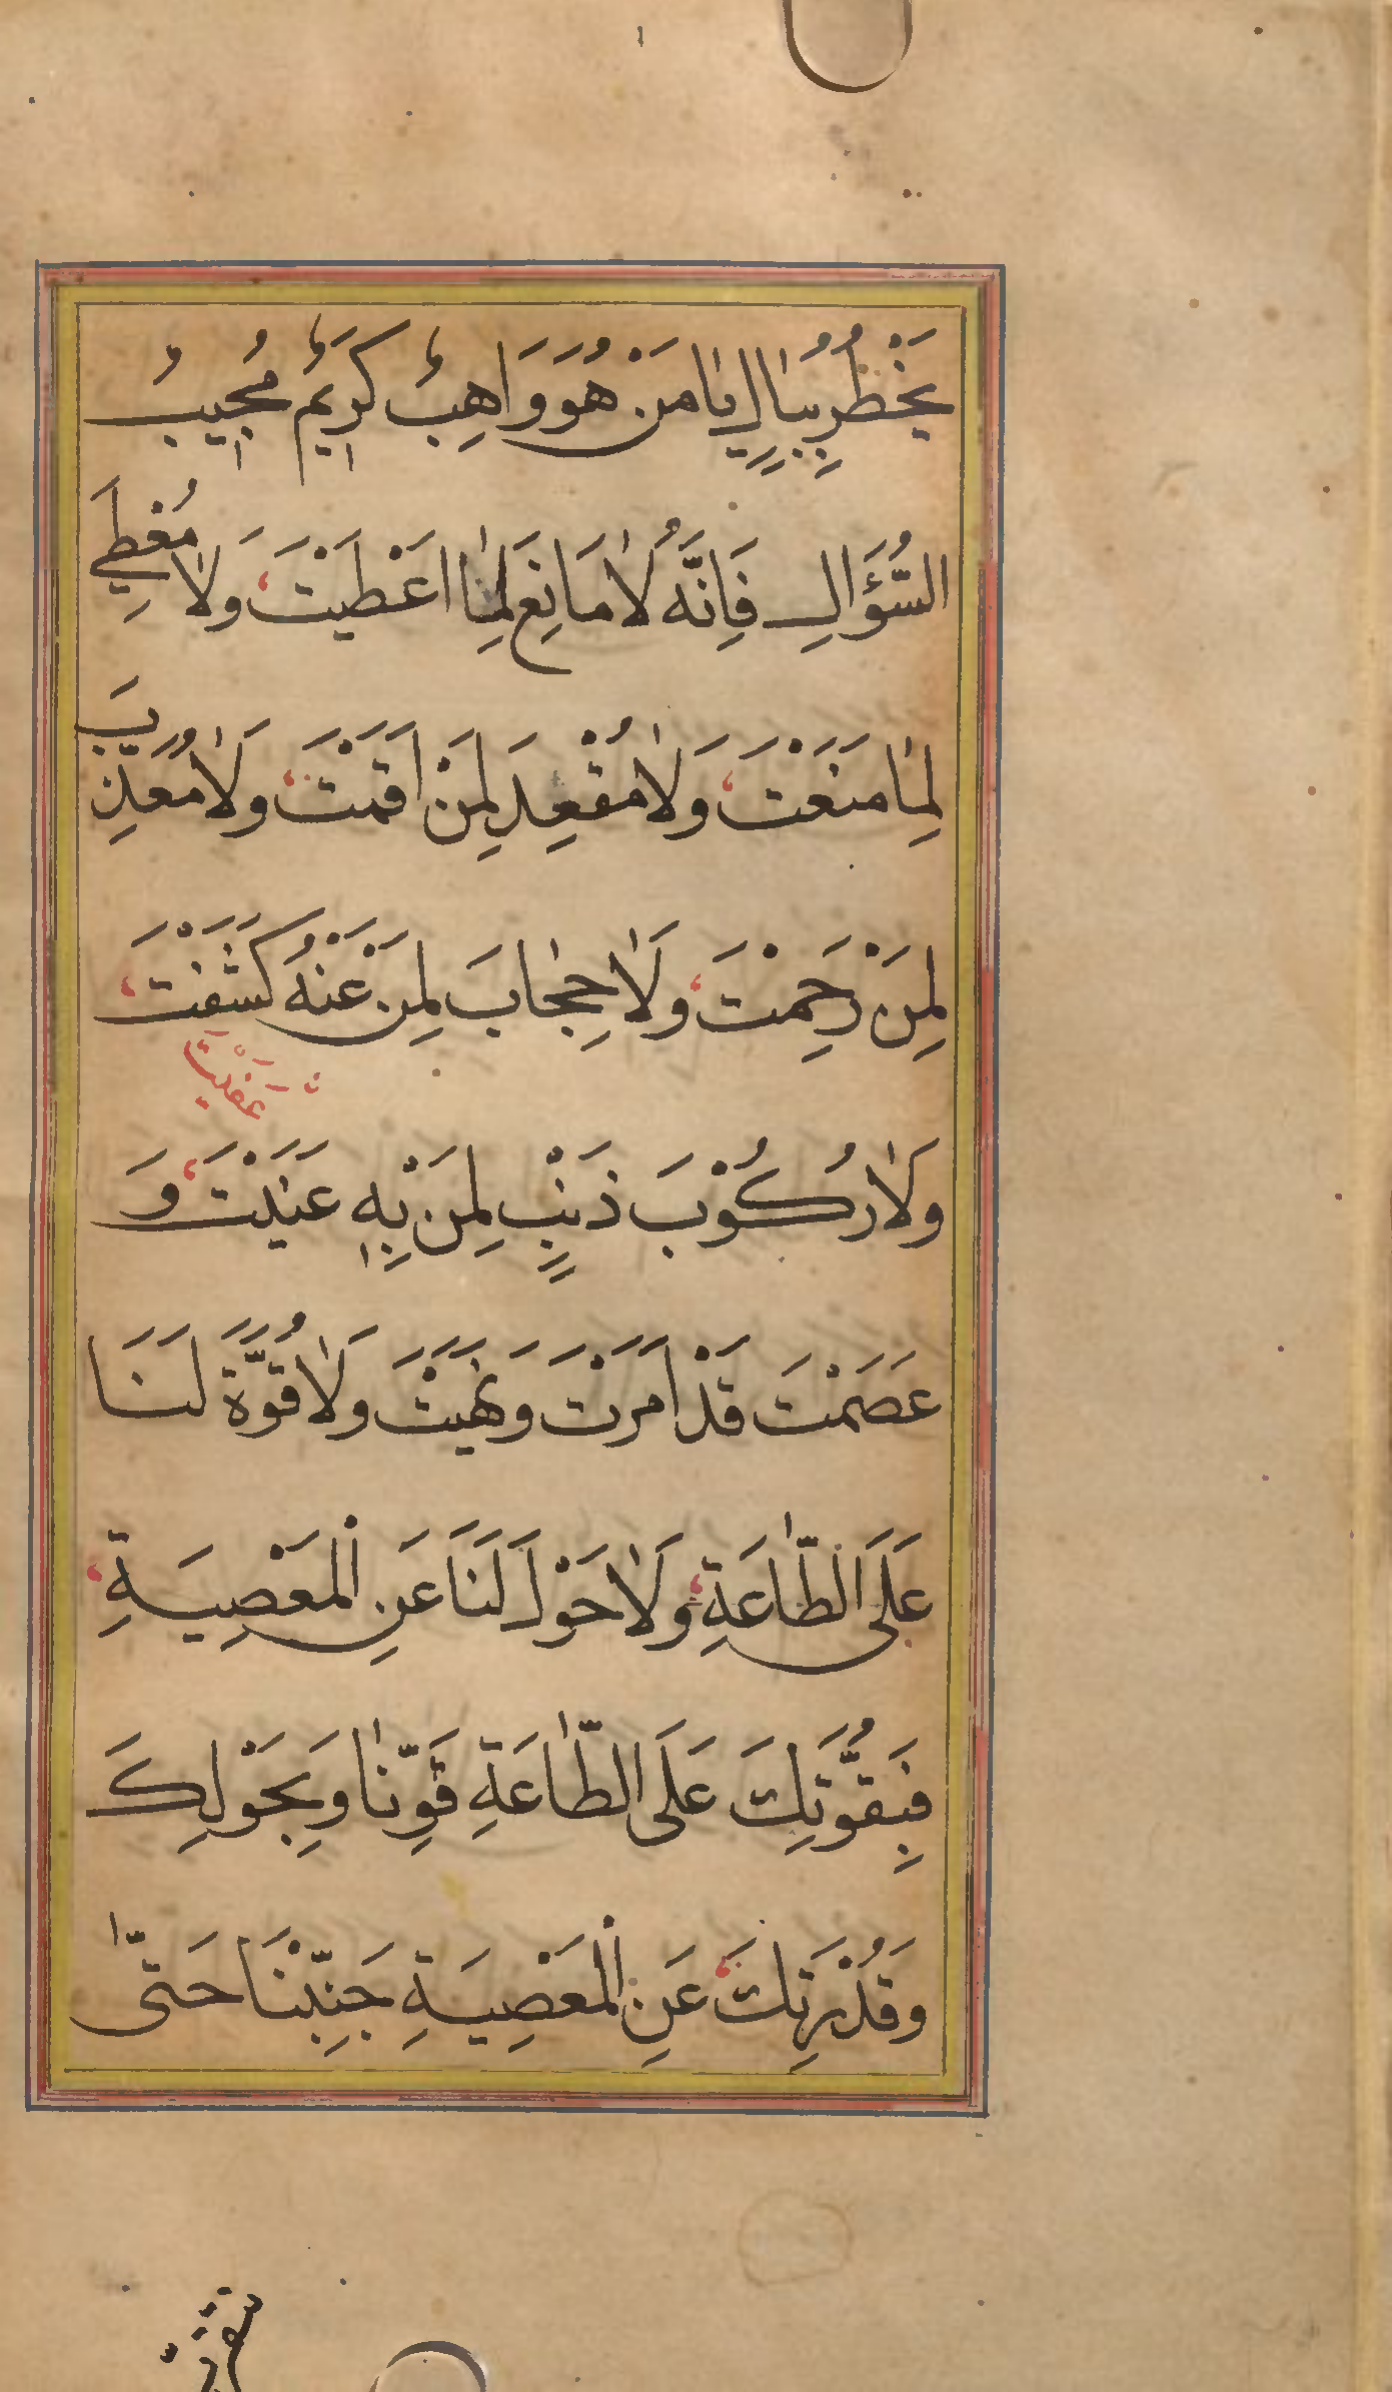 يَخْطُرُ بِبَالٍ يَا مَنْ هُوَ وَاهِبٌ كَرِيمٌ مُجِيبُ
السُّؤَالِ فَاِنَّهُ لَا مَانِعَ لِمَا اَعْطَيْتَ وَلَا مُعْطِيَ
لِمَا مَنَعْتَ وَلَا مُقْعِدَ لِمَنْ اَقَمْتَ وَلَا مُعَذِّبَ
لِمَنْ رَحِمْتَ وَلَا حِجَابَ لِمَنْ عَنْهُ كَشَفْتَ
وَلَا رُكُوْبَ ذَنْبٍ لِمَنْ بِهِ عَنَيْتَ وَ
عَصَمْتَ قَدْ اَمَرْتَ وَنَهَيْتَ وَلَا قُوَّةَ لَنَا
عَلَى الطَّاعَةِ وَلَا حَوْلَ لَنَا عَنِ الْمَعْصِيَةِ
فَبِقُوَّتِكَ عَلَى الطَّاعَةِ قَوِّنَا وَبِحَوْلِكَ
وَقُدْرَتِكَ عَنِ الْمَعْصِيَةِ جَنِّبْنَا حَتّٰى